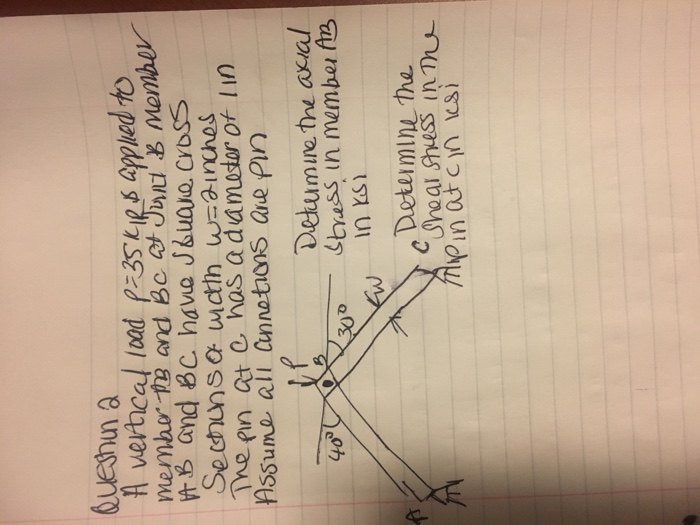 Question 2
A vertical load P=35 kip is applied to
member AB and BC at Joint B Member
AB and BC have square cross
Sections of width w=2 inches
The pin at C has a diameter of 1 in
Assume all connetions are pin
Determine the axial
Stress in member AB
in ksi
P
40°
B
30°
w
A
C
Determine the
Shear stress in the
pin at C in ksi